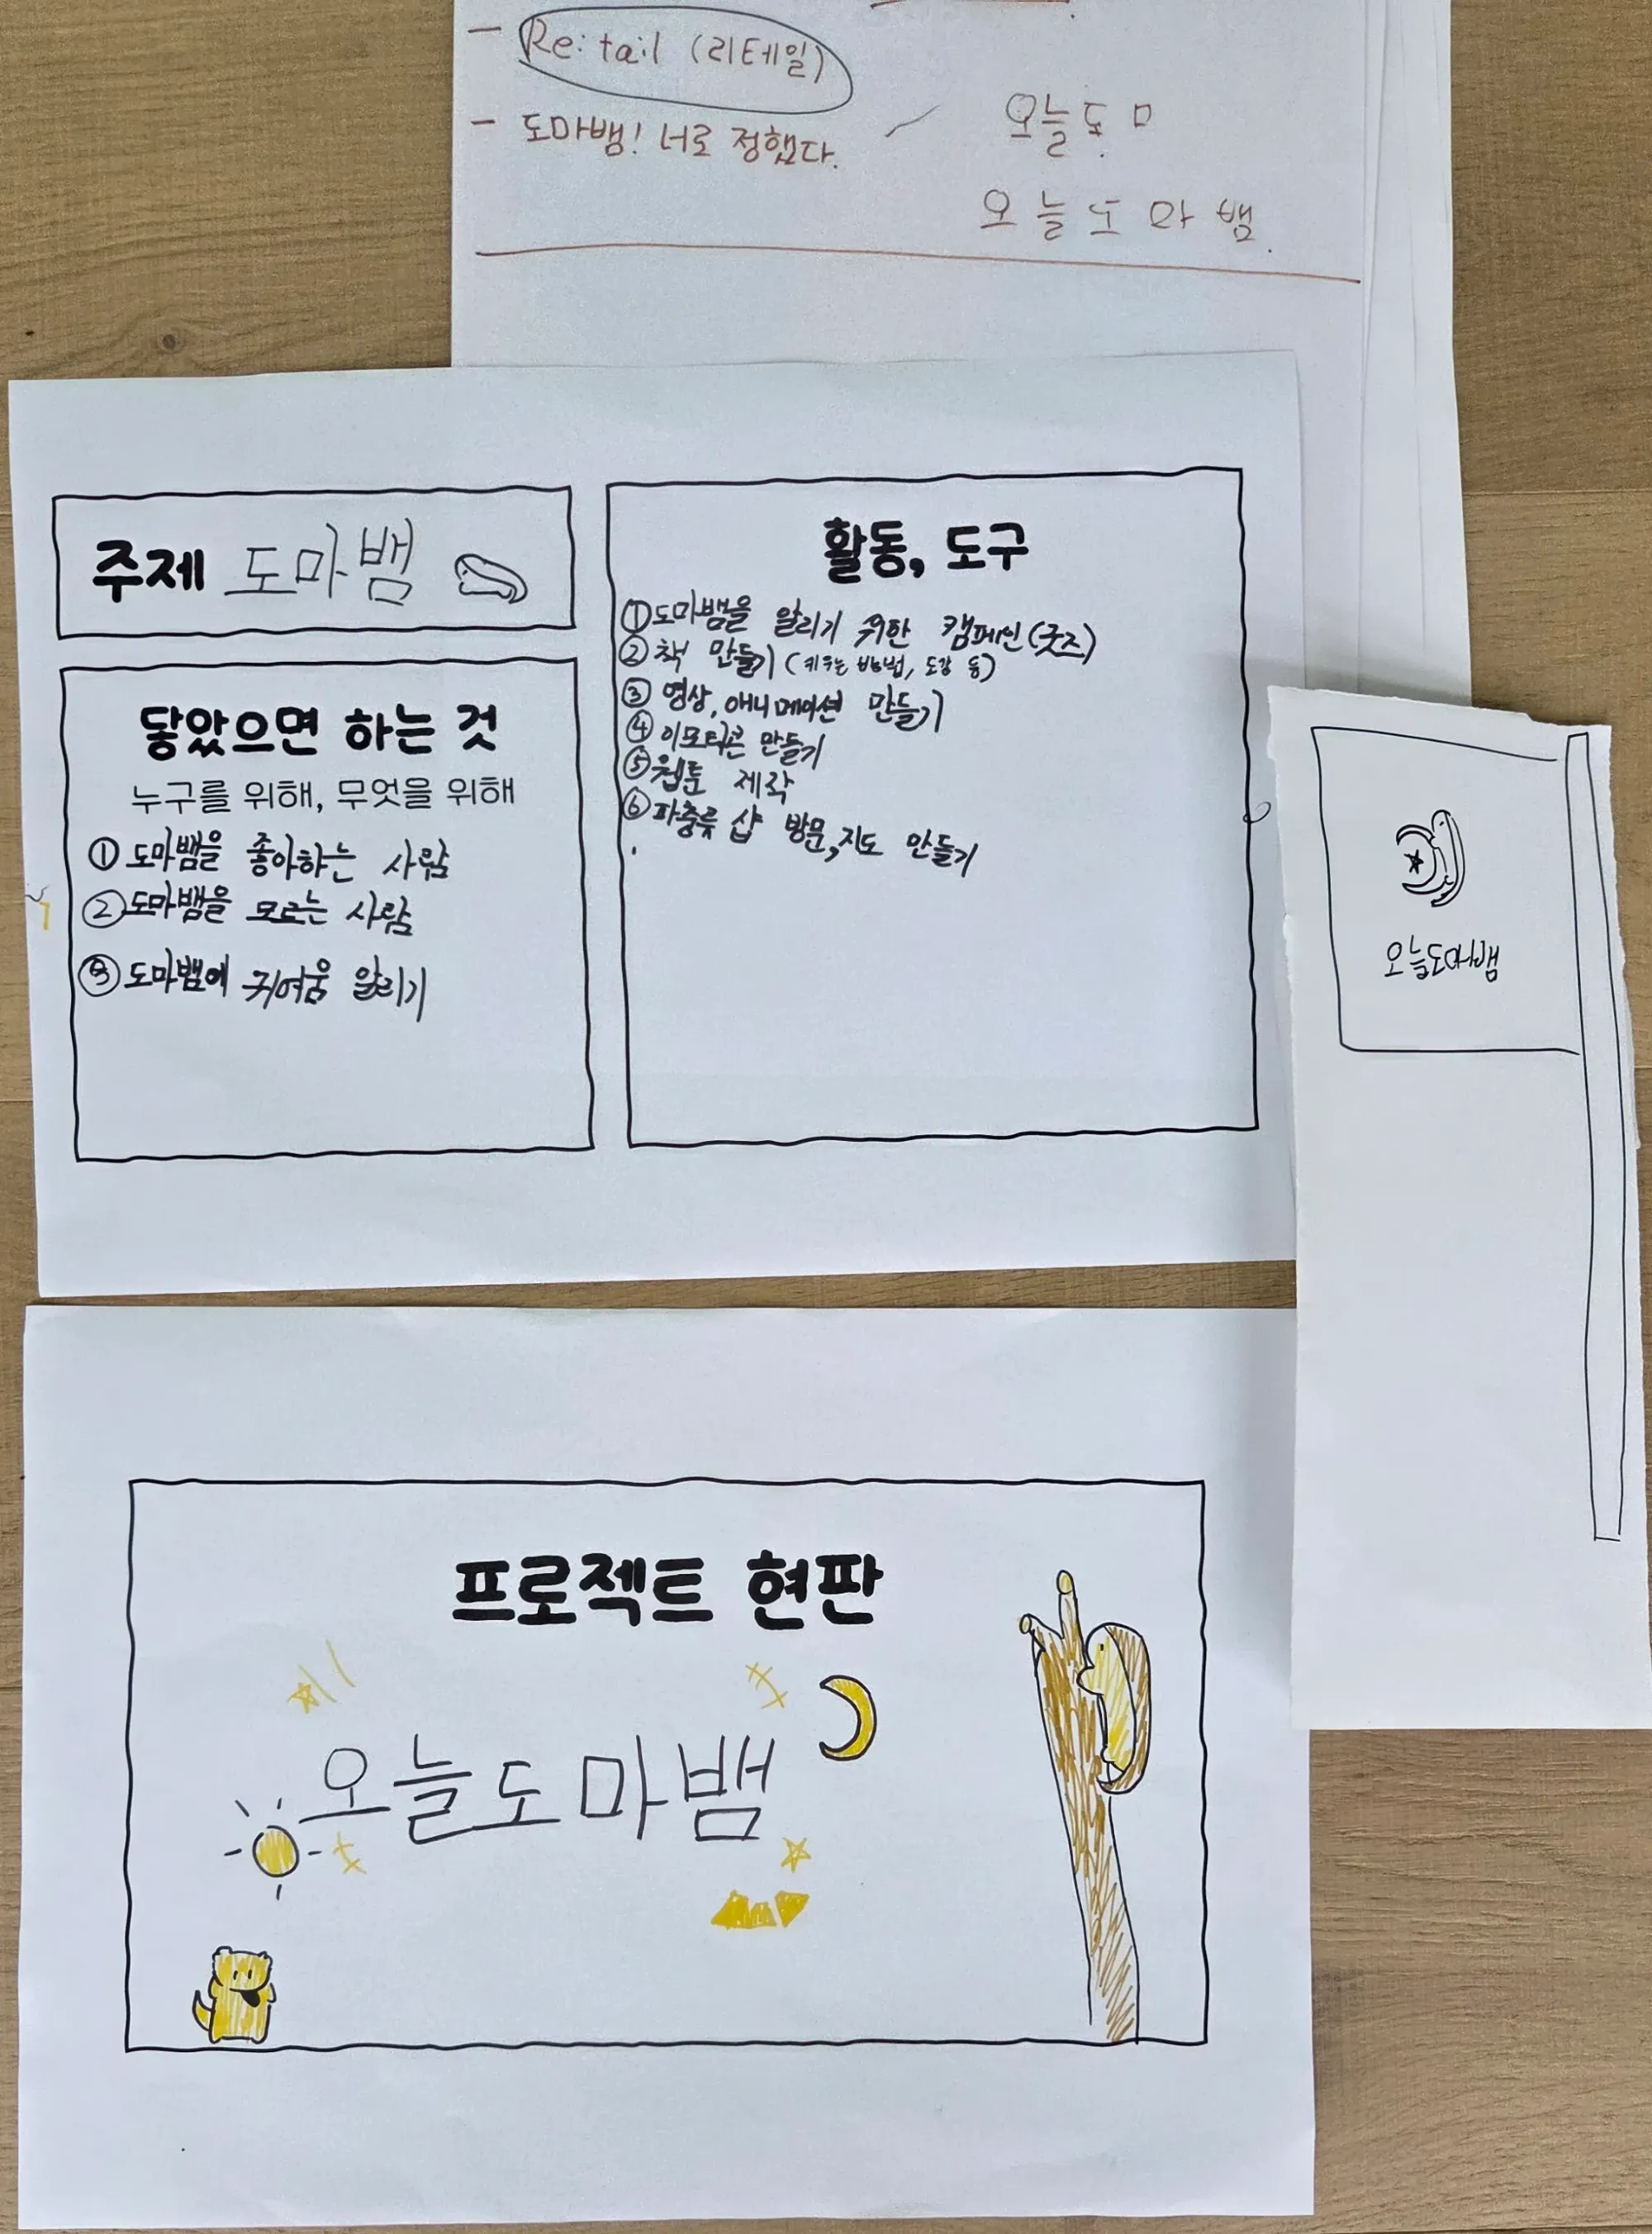 - Re:tail (리테일)
- 도마뱀! 너로 정했다.
오늘도ㅁ
오늘도마뱀.
주제 도마뱀
닿았으면 하는 것
누구를 위해, 무엇을 위해
① 도마뱀을 좋아하는 사람
② 도마뱀을 모르는 사람
③ 도마뱀에 귀여움 알리기
활동, 도구
① 도마뱀을 알리기 위한 캠페인(굿즈)
② 책 만들기 (키우는 방법, 도감 등)
③ 영상, 애니메이션 만들기
④ 이모티콘 만들기
⑤ 웹툰 제작
⑥ 파충류 샵 방문, 지도 만들기
오늘도마뱀
프로젝트 현판
오늘도마뱀